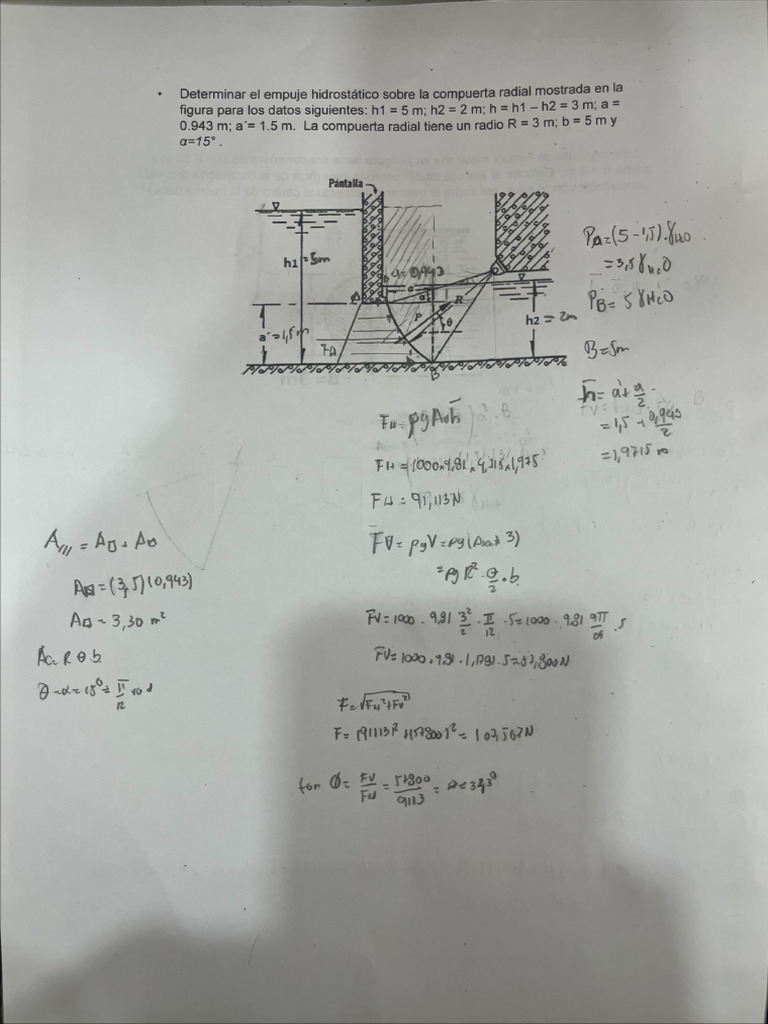 • Determinar el empuje hidrostático sobre la compuerta radial mostrada en la
figura para los datos siguientes: h1 = 5 m; h2 = 2 m; h = h1 – h2 = 3 m; a =
0.943 m; a´= 1.5 m. La compuerta radial tiene un radio R = 3 m; b = 5 m y
α=15° .
Pántalla
h1 = 5m
a = 0,943
a
α
R
P
θ
h2 = 2m
a´= 1,5 m
FA
B
PA = (5 - 1,5) . γH2O
= 3,5 γH2O
PB = 5 γH2O
B = 5m
h̄ = a' + a/2
= 1,5 + 0,943/2
= 1,9715 m
FH = ρgAh̄
FH = 1000 x 9,81 x 4,715 x 1,975
FH = 91,113N
A/// = A▭ + A
A▭ = (3,5)(0,943)
A▭ = 3,30 m²
Ac = R θ b
θ = α = 15° = π/12 rad
= ρg R² . θ/2 . b
FV = 1000 . 9,81 3²/2 . π/12 . 5 = 1000 . 9,81 9π/24 . 5
FV = 1000 . 9,81 . 1,1781 . 5 = 57,800N
F = √FH² + FV²
F = (91113)² + (57800)² = 107,567N
tan Ø = FV/FH = 57800/9113 =